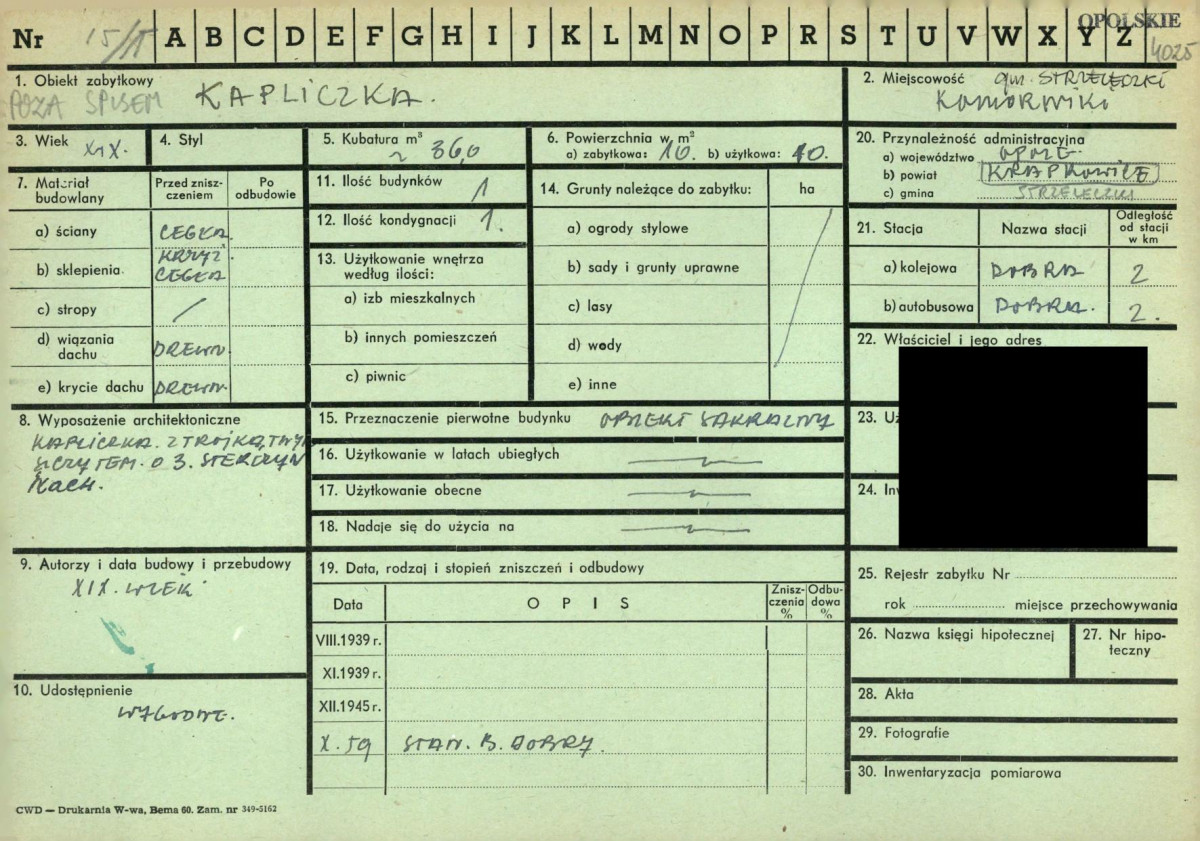 Nr 15/15 A B C D E F G H I J K L M N O P R S T U V W X Y Z OPOLSKIE 4025
1. Obiekt zabytkowy KAPLICZKA.
POZA SPISEM
2. Miejscowość gm. STRZELECZKI
Komorniki
3. Wiek XIX.
4. Styl
5. Kubatura m³ ~ 360
6. Powierzchnia w m²
a) zabytkowa: 10. b) użytkowa: 10.
20. Przynależność administracyjna
a) województwo OPOLE
b) powiat KRAPKOWICE
c) gmina STRZELECZKI
7. Materiał budowlany
Przed znisz-
czeniem
Po
odbudowie
a) ściany CEGŁA
b) sklepienia KRZYŻ.
CEGŁA
c) stropy /
d) wiązania
dachu DREWN.
e) krycie dachu DREWN.
11. Ilość budynków 1
12. Ilość kondygnacji 1.
13. Użytkowanie wnętrza
według ilości:
a) izb mieszkalnych
b) innych pomieszczeń
c) piwnic
14. Grunty należące do zabytku: ha
a) ogrody stylowe
b) sady i grunty uprawne
c) lasy
d) wody
e) inne
21. Stacja Nazwa stacji Odległość
od stacji
w km
a) kolejowa DOBRA 2
b) autobusowa DOBRA. 2.
22. Właściciel i jego adres
8. Wyposażenie architektoniczne
KAPLICZKA. Z TRÓJKĄTNYM
SZCZYTEM. O 3. STERCZYN
KACH.
15. Przeznaczenie pierwotne budynku OBIEKT SAKRALNY
16. Użytkowanie w latach ubiegłych
17. Użytkowanie obecne
18. Nadaje się do użycia na
23.
24.
9. Autorzy i data budowy i przebudowy
XIX. WIEK
10. Udostępnienie
WYGODNE.
19. Data, rodzaj i stopień zniszczeń i odbudowy
Data OPIS Znisz-
czenia
% Odbu-
dowa
%
VIII.1939 r.
XI.1939 r.
XII.1945 r.
X. 59 STAN. B. DOBRY.
25. Rejestr zabytku Nr
rok miejsce przechowywania
26. Nazwa księgi hipotecznej
27. Nr hipo-
teczny
28. Akta
29. Fotografie
30. Inwentaryzacja pomiarowa
CWD — Drukarnia W-wa, Bema 60. Zam. nr 349-5162